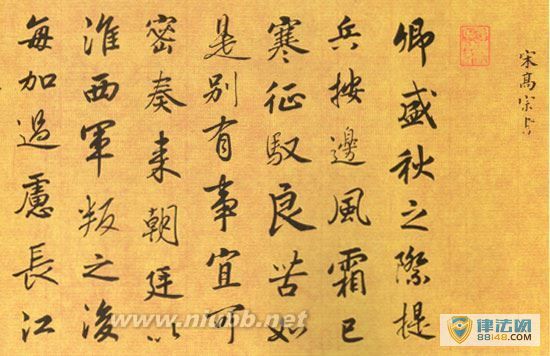 宋高宗書
卿盛秋之際提
兵按邊風霜已
寒征馭良苦如
是别有事宜可
密奏来朝廷以
淮西軍叛之後
每加過慮長江
www.niubb.net
律法网
88148.com